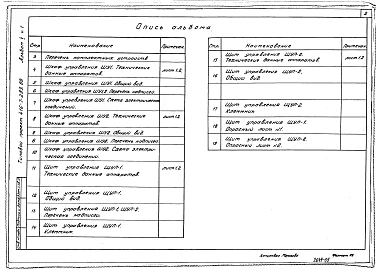 2
Опись альбома
Альбом 5 ч.1
Типовой проект 416-7-283.89
Стр. Наименование Примечан.
3 Перечень комплектных устройств
4 Шкаф управления ШУ1. Технические данные аппаратов. лист 1.2
5 Шкаф управления ШУ1. Общий вид.
6 Шкаф управления ШУ1,2. Перечень надписей.
7 Шкаф управления ШУ1. Схема электрическая соединений.
8 Шкаф управления ШУ2. Технические данные аппаратов. лист 1.2
9 Шкаф управления ШУ2. Общий вид.
9 Шкаф управления ШУ2. Перечень надписей.
10 Шкаф управления ШУ2. Схема электрическая соединений.
11 Щит управления ЩУП-1. Технические данные аппаратов. лист 1.2
12 Щит управления ЩУП-1. Общий вид.
13 Щит управления ЩУП-1, ЩУП-2. Перечень надписей.
14 Щит управления ЩУП-1. Клеммник.
Стр. Наименование Примечан.
15 Щит управления ЩУП-2. Технические данные аппаратов. лист 1.2
16 Щит управления ЩУП-2. Общий вид.
17 Щит управления ЩУП-2. Клеммник
18 Щит управления ЩУП-1. Опросный лист №1.
19 Щит управления ЩУП-2. Опросный лист №2.
Формат А3